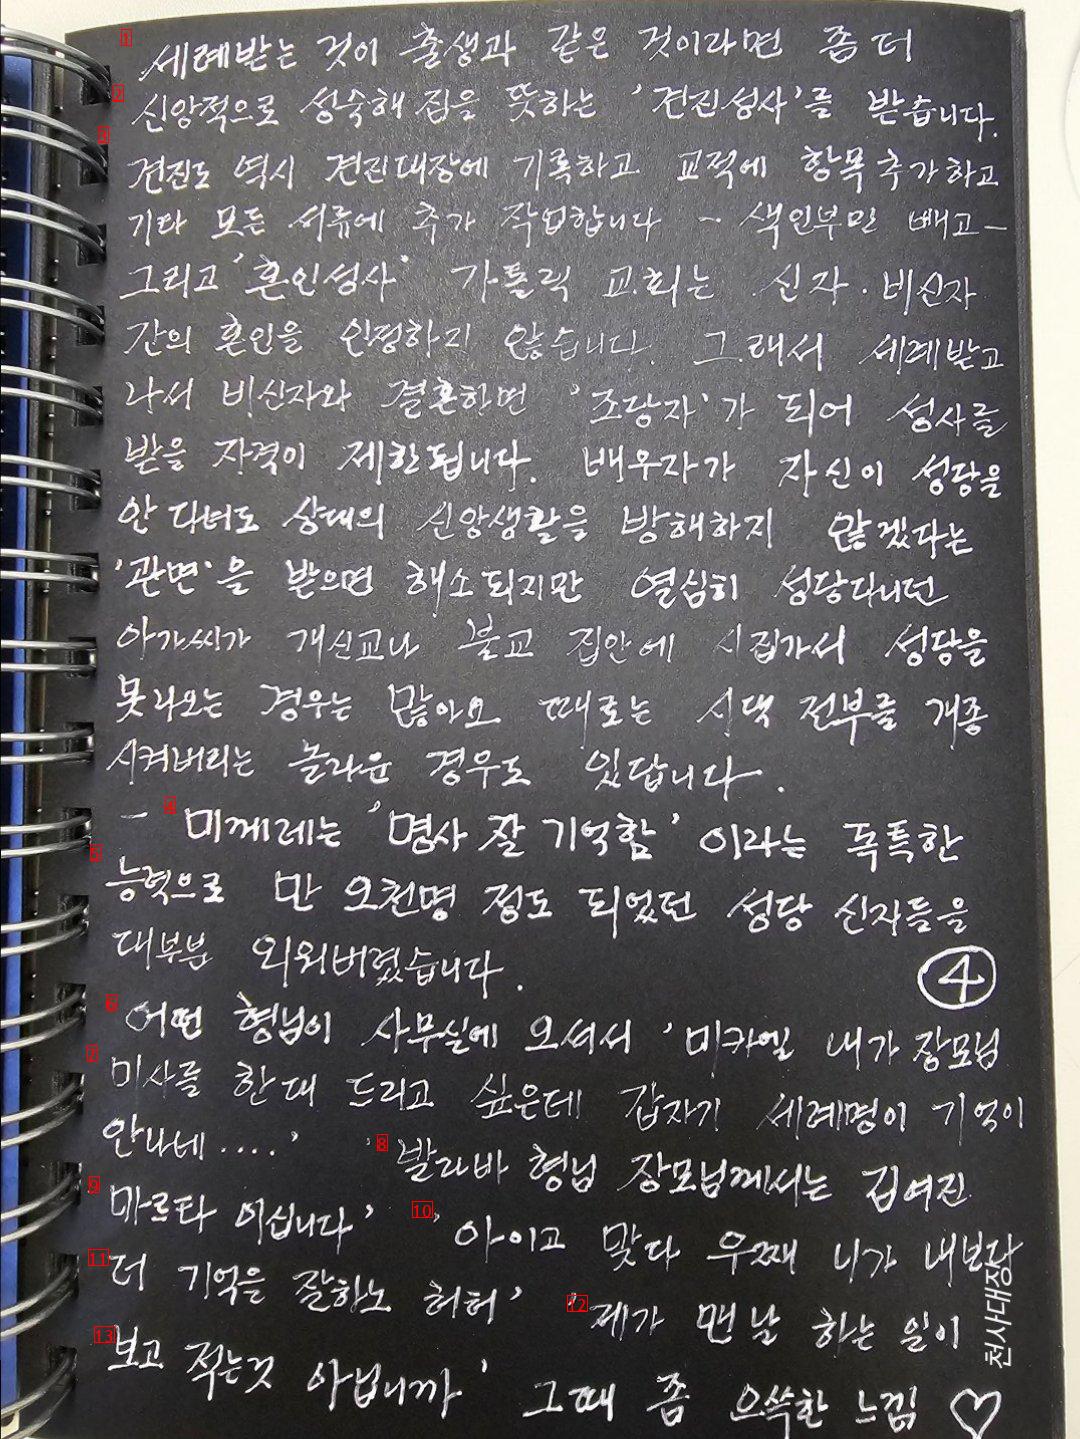 세례받는 것이 출생과 같은 것이라면 좀 더
신앙적으로 성숙해 짐을 뜻하는 '견진성사'를 받습니다.
견진도 역시 견진대장에 기록하고 교적에 항목추가하고
기타 모든 서류에 추가 작업합니다 - 색인부만 빼고-
그리고 '혼인성사' 가톨릭 교회는 신자·비신자
간의 혼인을 인정하지 않습니다. 그래서 세례받고
나서 비신자와 결혼하면 '조당자'가 되어 성사를
받을 자격이 제한됩니다. 배우자가 자신이 성당을
안 다녀도 상대의 신앙생활을 방해하지 않겠다는
'관면'을 받으면 해소되지만 열심히 성당다니던
아가씨가 개신교나 불교 집안에 시집가서 성당을
못나오는 경우는 많아요 때로는 시댁 전부를 개종
시켜버리는 놀라운 경우도 있답니다.
- 미께레는 '명사 잘 기억함' 이라는 독특한
능력으로 만 오천명 정도 되었던 성당 신자들을
대부분 외워버렸습니다.
④
어떤 형님이 사무실에 오셔서 '미카엘 내가 장모님
미사를 한대 드리고 싶은데 갑자기 세례명이 기억이
안나네....' '발라바 형님 장모님께서는 김여진
마르타 이십니다' '아이고 맞다 우째 니가 내보다
더 기억을 잘하노 허허' '제가 맨날 하는 일이
보고 적는것 아닙니까' 그때 좀 으쓱한 느낌 ♡
천사대장
1
2
3
4
5
6
7
8
9
10
11
12
13